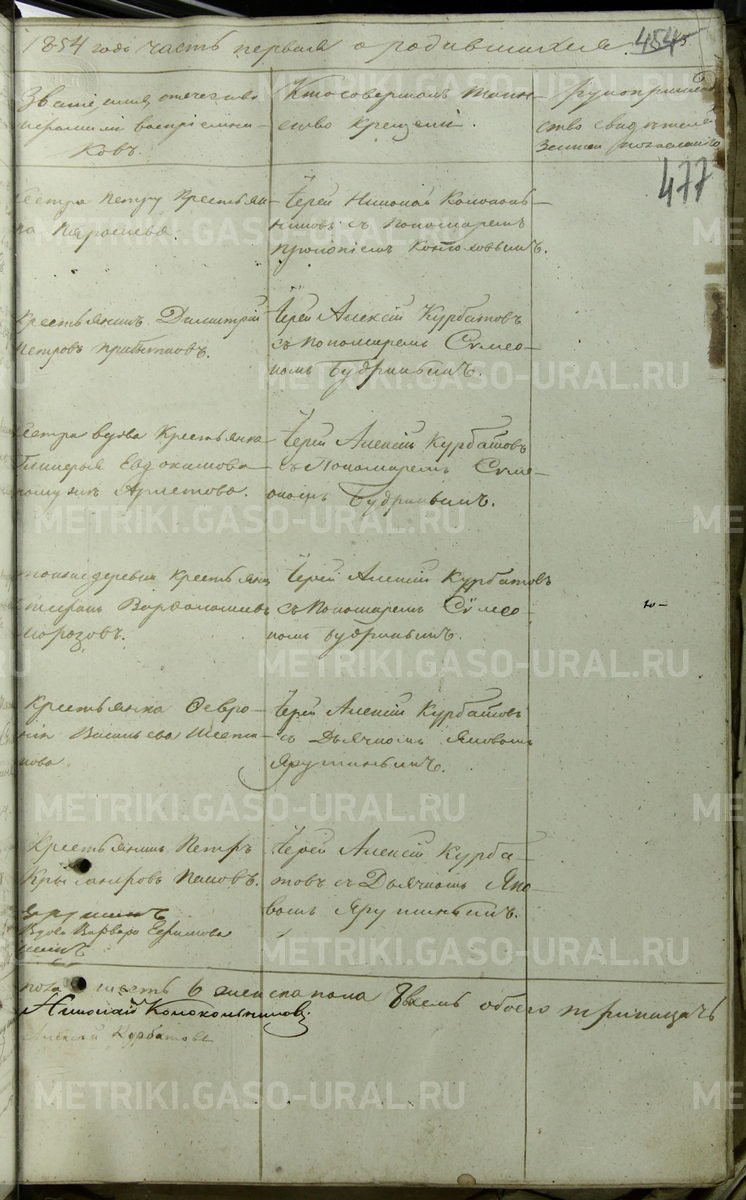 1854 года часть первая о родившихся.
454
477
Званіе имя отечество
и фамилія воспріемни-
ковъ.
Кто совершалъ таин-
ство крещенія.
Рукоприклад
ство свидѣтелей
записи по желанію
Сестра Петру Крестьян-
ка Парасковья
Іерей Николай Колоколь-
никовъ съ Пономаремъ
Прокопіемъ
Крестьянинъ Димитрій
Петровъ
Іерей Алексѣй Курбатовъ
съ Пономаремъ Сѵмео-
номъ Будринымъ.
Сестра вдова Крестьянка
Гликерья Евдокимова
по мужѣ
Іерей Алексѣй Курбатовъ
съ Пономаремъ Сѵме-
ономъ Будринымъ.
тойже деревни Крестьян
Морозовъ.
Іерей Алексѣй Курбатовъ
съ Пономаремъ Сѵмео-
номъ Будринымъ.
Крестьянка Февро-
нія Васильева
Іерей Алексѣй Курбатовъ
съ Дьячкомъ Яковомъ
Ярутинымъ.
Крестьянинъ Петръ
Поповъ.
Вдова Варвара Ефимова
Іерей Алексѣй Курба-
товъ съ Дьячкомъ Яко-
вомъ Ярутинымъ.
пола шесть 6 женска пола 8 восемь обоего
Николай Колокольниковъ
Алексѣй Курбатовъ
METRIKI.GASO-URAL.RU